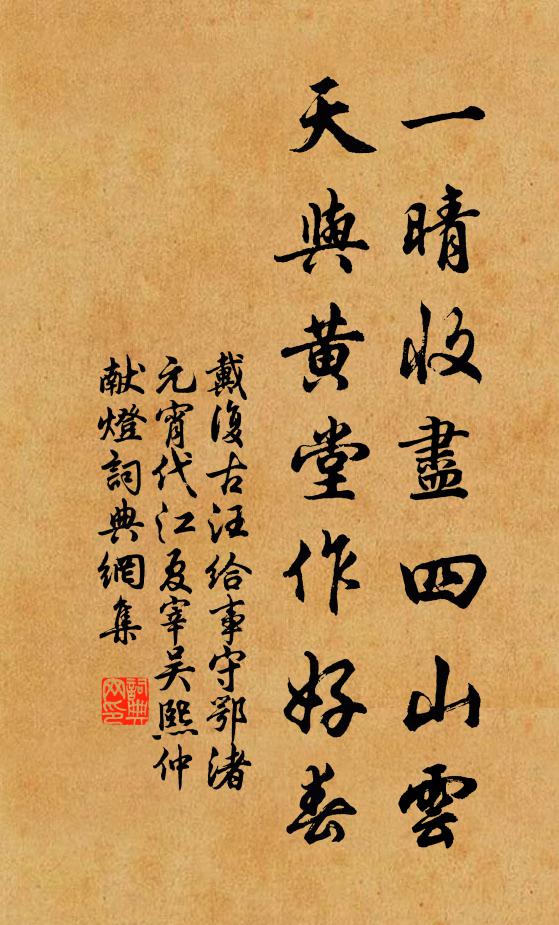 一晴收盡四山雲
天與黄堂作好春
戴復古汪給事守鄂渚
元宵代江夏宰吴熙仲
献燈詞典網集
詞典
网印